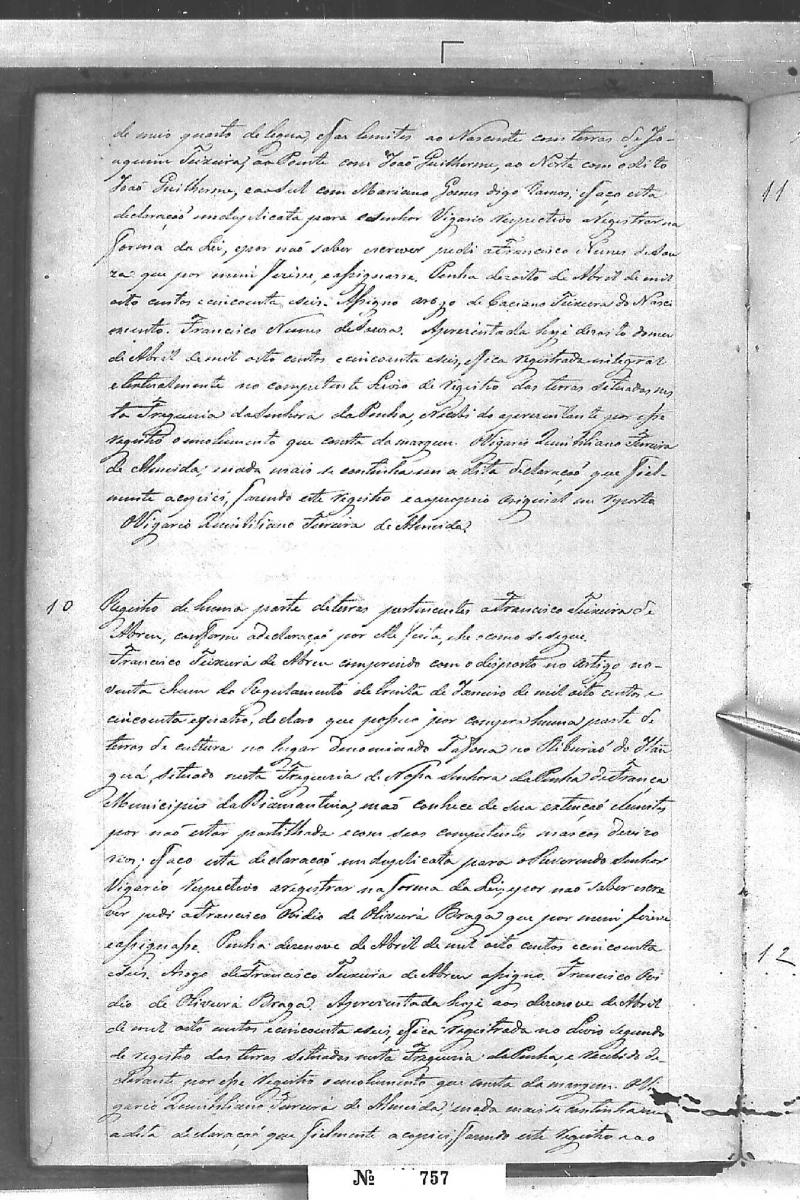 de meio quarto de legua, e faz lemites ao Nascente com terras de Jo-
aquim Teixeira, ao Poente com João Guilherme, ao Norte com o dito
João Guilherme, e ao Sul com Mariano Gomes digo Ramos; e faço esta
declaração em duplicata para o senhor Vigario respectivo a registrar na
forma da Lei, e por naõ saber escrever pedi a Francisco Nunes de Sou-
za que por mim fizesse, e assignasse. Penha dezoito de Abril de mil
oito centos e cincoenta e seis. Assigno arogo de Caciano Teixeira do Nasci-
mento. Francisco Nunes de Souza. Aprezentada hoje dezoito do mez
de Abril de mil oito centos e cincoenta e seis, e fica registrada integral
e textualmente no competente Livro de registro das terras situadas nes
ta Freguezia da Senhora da Penha, recebi do aprezentante por esse
registro o emolumento que consta da margem. O Vigario Quintiliano Ferreira
de Almeida; nada mais se continha em a dita declaração que fiel-
mente a copiei, fazendo este registro e ao proprio original me reporto
O Vigario Quintiliano Ferreira de Almeida.
10 Registro de huma parte de terras pertencentes a Francisco Teixeira de
Abreu, conforme a declaração por elle feita, che como se segue.
Francisco Teixeira de Abreu comprindo com o disposto no Artigo no-
venta e hum do Regulamento de trinta de Janeiro de mil oito centos e
cincoenta e quatro, declaro que possuo por compra huma parte de
terras de cultura no lugar denominado Tafona no Ribeiraõ do Itan
guá, situado nesta Freguezia de Nossa Senhora da Penha de França
Municipio da Diamantina, naõ conhece de sua extençaõ e lemites
por naõ estar partilhada e com seos competentes marcos devizo
rios; e faço esta declaraçaõ em duplicata para o Reverendo Senhor
Vigario respectivo a registrar na forma da Lei, e por naõ saber escre
ver, pedi a Francisco Ovidio de Oliveira Braga que por mim fizesse
e assignasse. Penha dezenove de Abril de mil oito centos e cincoenta
e seis. Arogo de Francisco Teixeira de Abreu assigno. Francisco Ovi
dio de Oliveira Braga. Aprezentada hoje aos dezenove de Abril
de mil oito centos e cincoenta e seis, e fica registrada no Livro segundo
de registro das terras situadas nesta Freguezia da Penha, e recebi do
por esse registro o emolumento que consta da margem. O Vi
gario Quintiliano Ferreira de Almeida; nada mais se continha em
a dita declaração que fielmente a copiei, fazendo este registro e ao
11
12
Nº 757